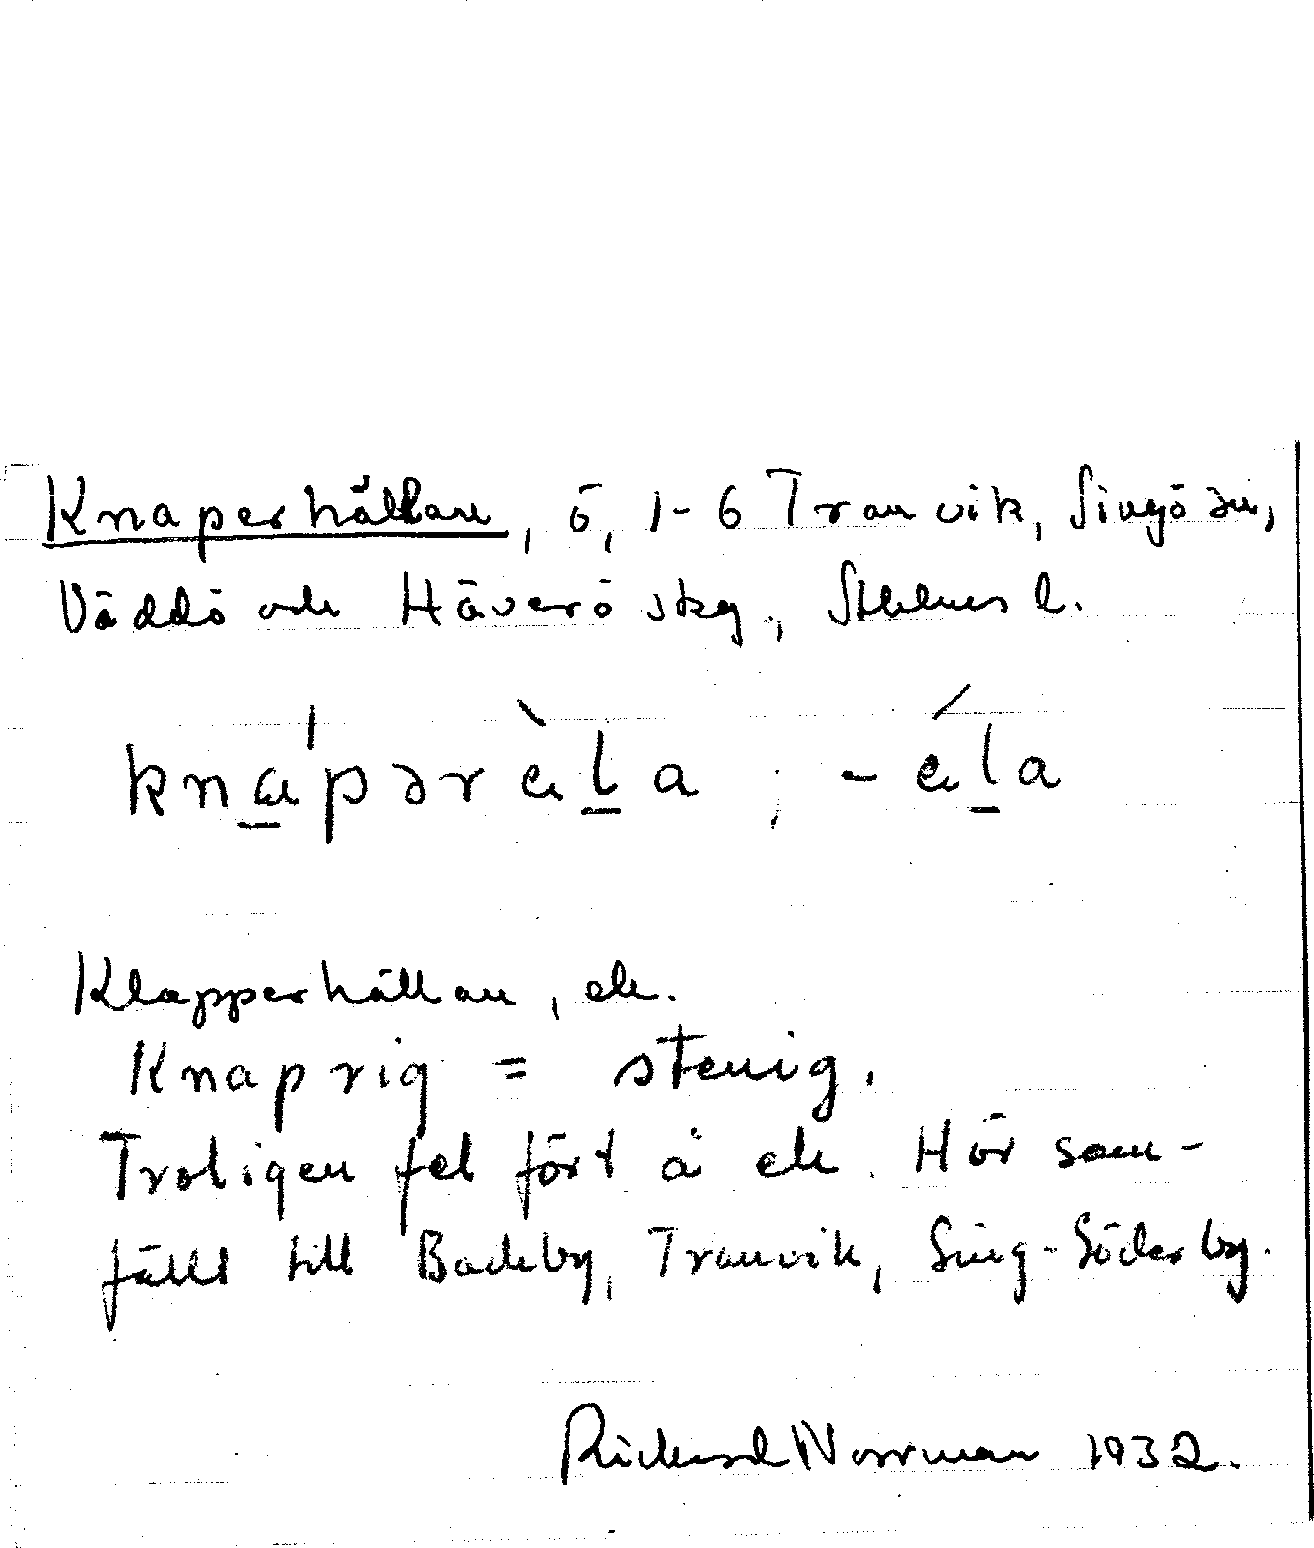 Knaperhällan, ö, 1-6 Tranvik, Singö sn,
Väddö och Häverö skg, Sthlms l.
knápərèla, -éla
Klapperhällan, ek.
Knaprig = stenig.
Troligen fel fört å ek. Hör sam-
fällt till Backby, Tranvik, Sing-Söderby.
Rickard Norrman 1932.